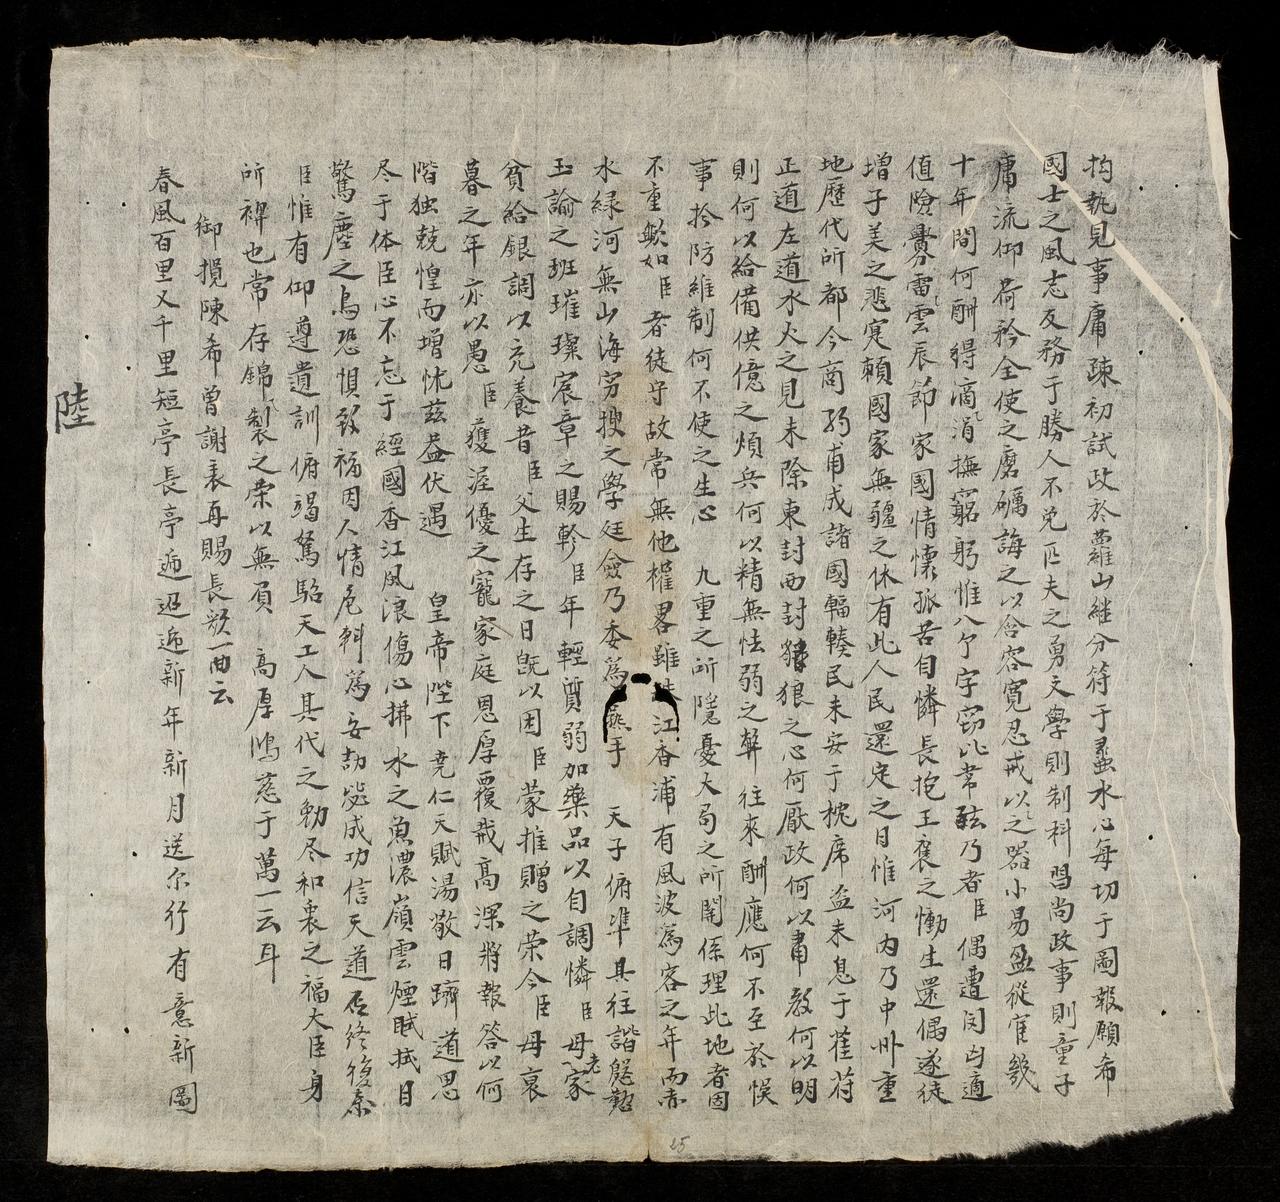 拘執見事庸疎初試政於蘿山継分符于蠡水心每切于圖報願希
國士之風志反務于勝人不免匹夫之勇文學則制科習尚政事則童子
庸流仰荷衿全使之磨礪誨之以含容寬忍戒以之器小易盈從宦幾
十年間何酬得滴涓撫竆躬惟八个字窃比常玆乃者臣偶遭閔凶適
值險釁雷雲辰節家國情懷孤苦自憐長抱王裒之慟生還偶遂徒
增子美之悲寔頼國家無疆之休有此人民還定之日惟河内乃中州重
地歷代所都今商舶甫成諸國輻輳民未安于枕席盗未息于萑苻
正道左道水火之見未除東封西封狼之心何厭政何以肅教何以明
則何以給備供億之煩兵何以精無怯弱之弊往來酬應何不至於悞
事扵防維制何不使之生心九重之所隱憂大局之所関係理此地者固
不重歟如臣者徒守故常無他權畧雖江香浦有風波為客之年而赤
水綠河無山海窮搜之學廷僉乃委為熟手天子俯準其往諧慇懃
玉諭之班璀璨宸章之賜軫臣年輕質弱加藥品以自調憐臣母老家
貧給銀調以充養昔臣父生存之日既以困臣蒙推贈之荣今臣母衰
暮之年亦以愚臣獲渥優之寵家庭恩厚覆戴高深將報答以何
階独兢惶而增怵玆益伏遇皇帝陛下尭仁天賦湯敬日躋道思
尽于体臣心不忘于經國香江風浪傷心拂水之魚濃嶺雲煙拭目
驚塵之鳥恐惧致福因人情危斡為安劫毖成功信天道否終復泰
臣惟有仰遵遺訓俯竭駑駘天工人其代之勅尽和衷之福大臣身
所裨也常存錦製之荣以無負高厚鴻慈于萬一云耳
御攬陳希曾謝表再賜長欵一曲云
春風百里又千里短亭長亭遞迢遞新年新月送尔行有意新圖
陸
25